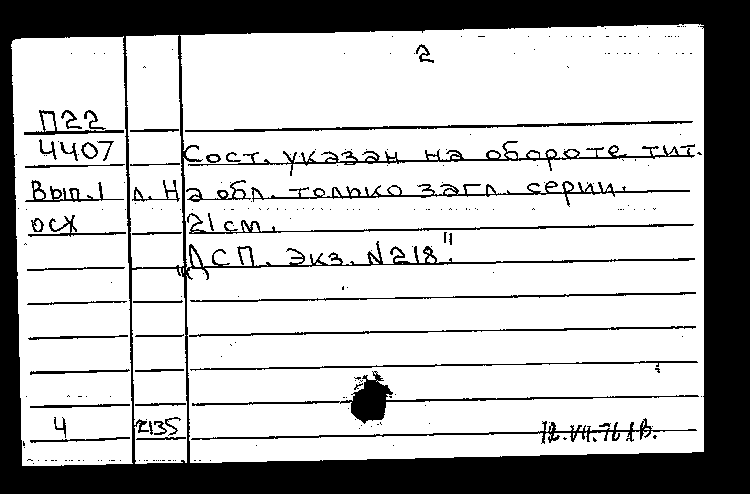 2
П22
4407 Сост. указан на обороте тит.
Вып.1 л. На обл. только загл. серии.
осх 21 см.
"ДСП. Экз. №218".
4 2135 12.VII.76